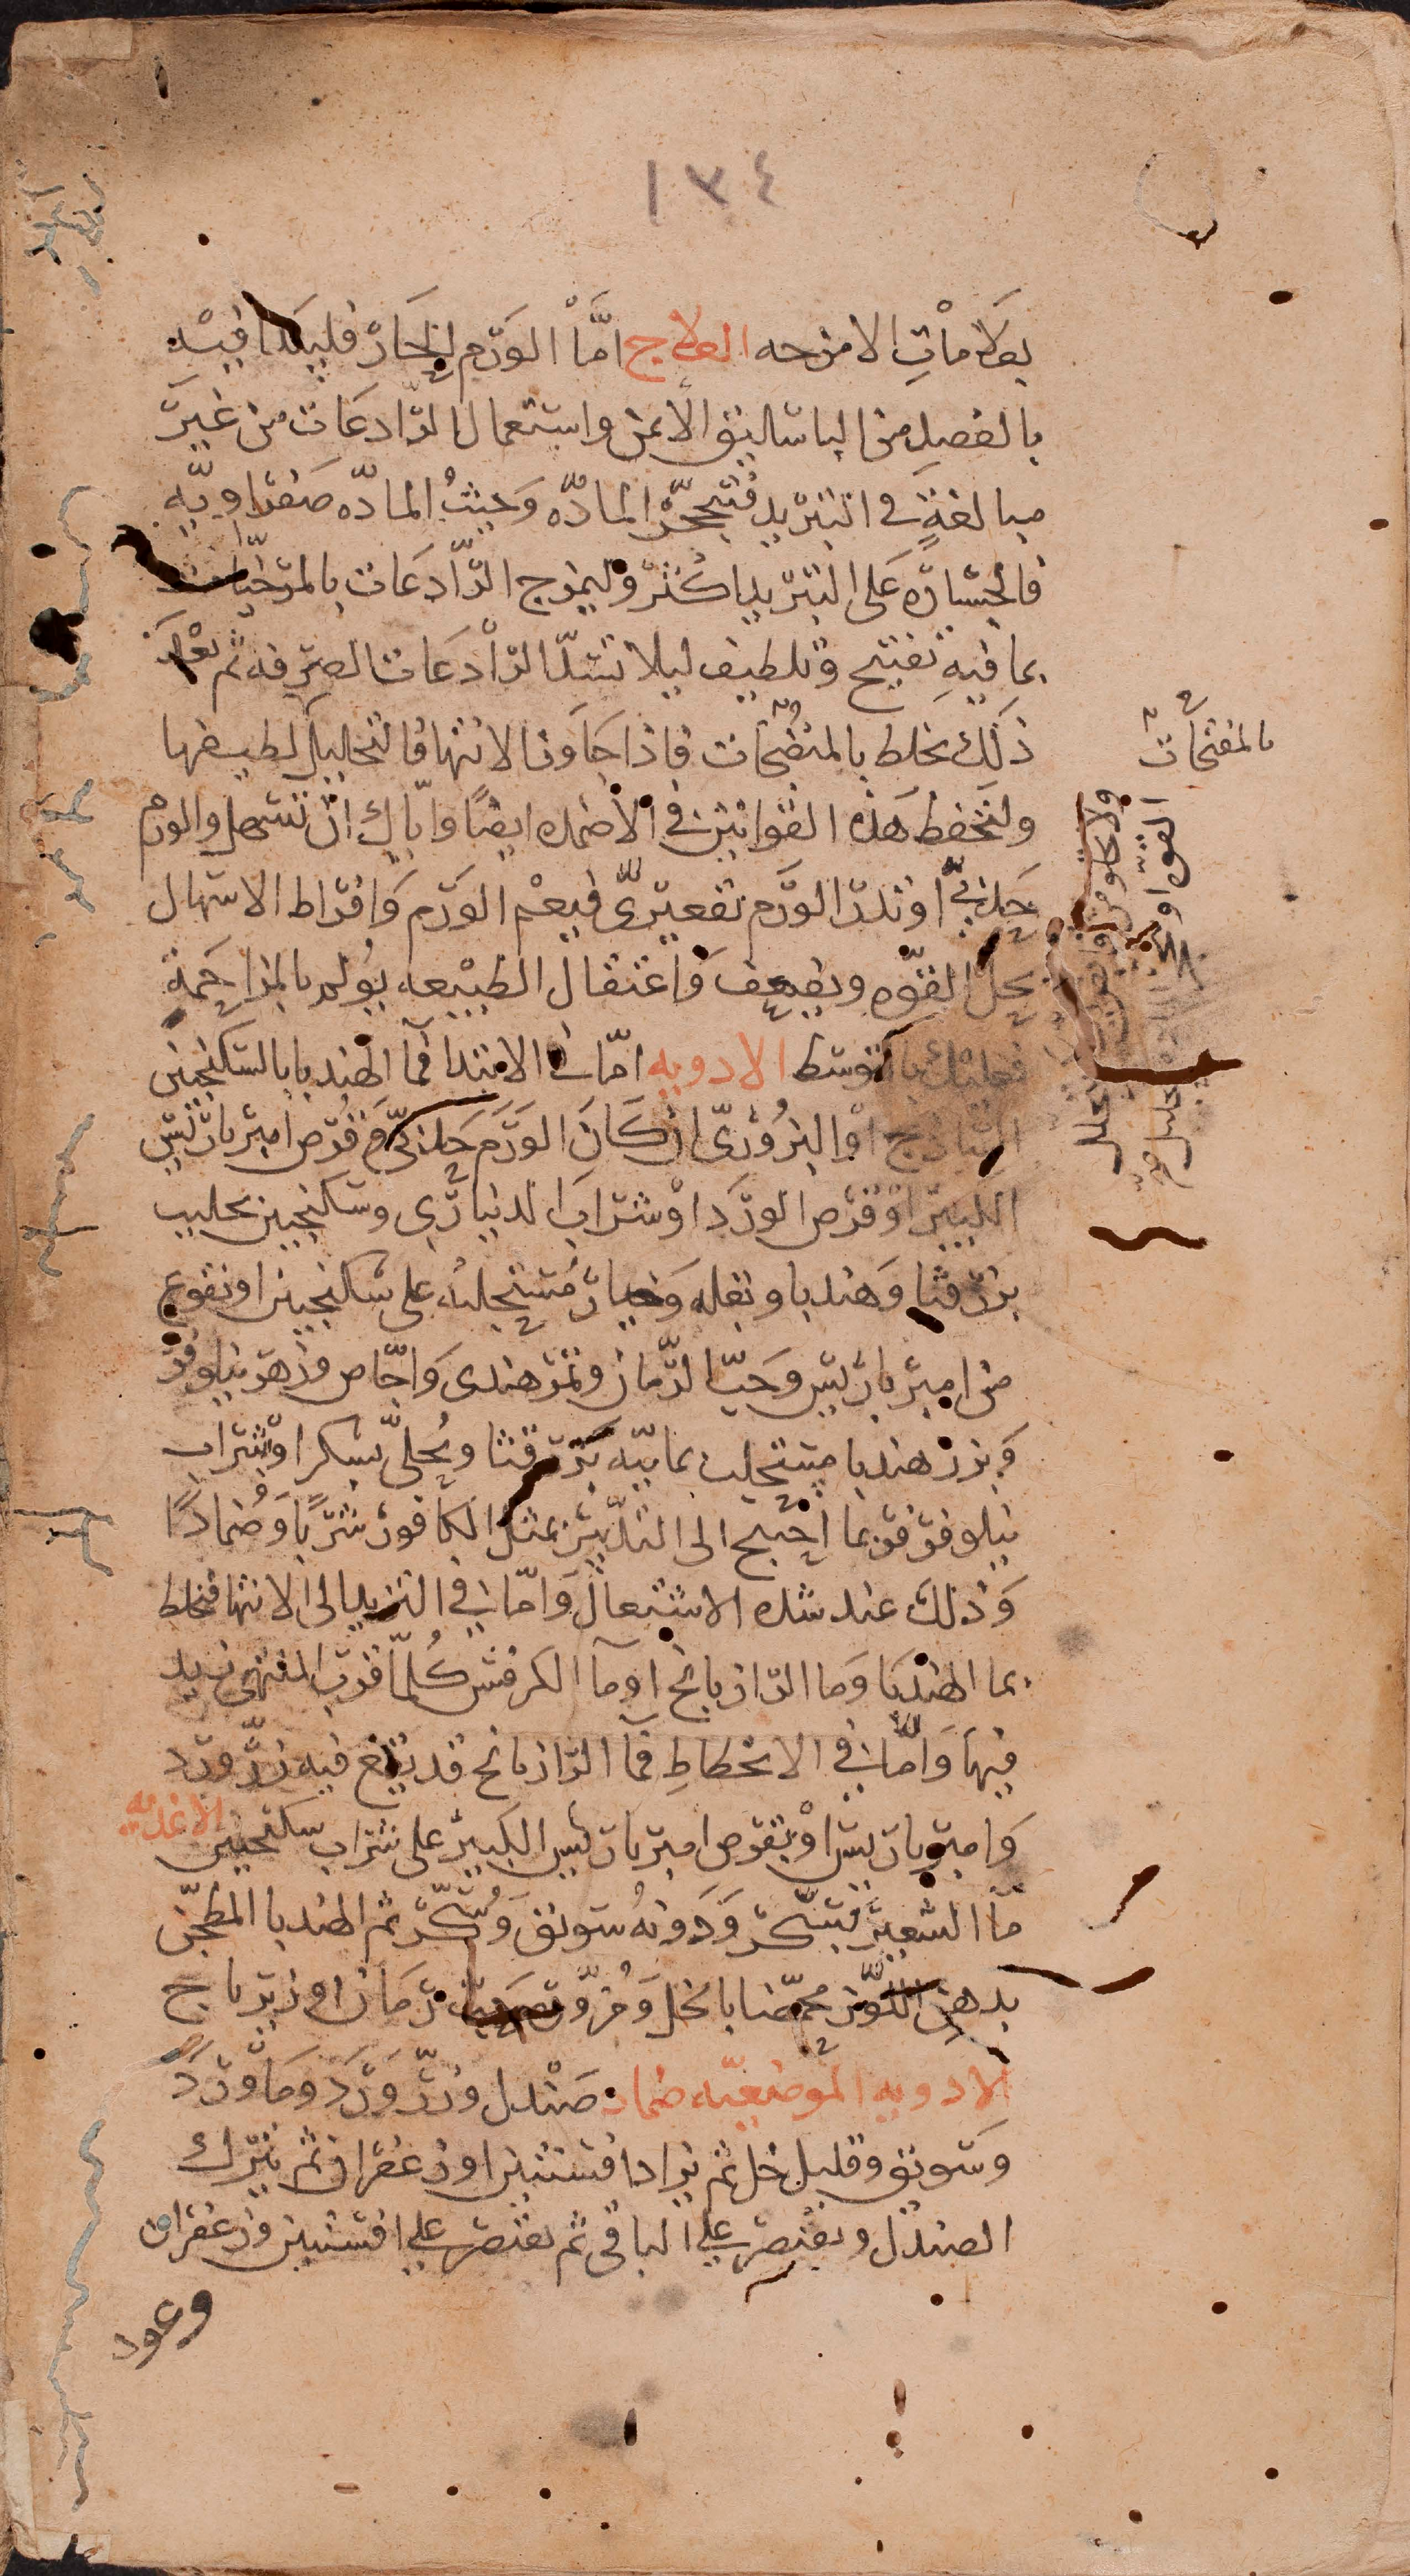 ١٣٤
بعلاماتِ الامزجه العلاج امّا الورم الحار فليبدا فيه
بالفصد من الباسليق الأيمن واستعمال الرادعات من غير
مبالغة في التبريد فتحجّر المادّه وحيثُ المادّه صفراويّه
فالجسارة على التبريد اكثر وليمزج الرّادعات بالمرخيات
بما فيهِ تفتيح وتلطيف ليلا تسدّ الرادعات الصرفه ثم بعد
ذلك يخلط بالمنضجات فاذا جاوز الانتها فالتحليل لطيفها
بالمفتحات
ولتحفظ هذه القوانين في الاضمده ايضًا وايّاك ان تسهل والورم
حدبيّ او تدرّ الورم تقعيريّ فيعم الورم وافراط الاسهال
يحل القوه ويضعف واعتقال الطبيعه يولم بالمزاحمة
فعليك بالتوسط الادويه امّا في الابتدا فما الهندبا بالسكنجبين
الساذج او البزوري ان كان الورم حدبيّ مع قرص امير باريس
الكبير او قرص الورد او شراب الديناري وسكنجبين بحليب
بزر قثا وهندبا وبقله وخيار مستحلبه على سكنجبين او نقوع
من امير باريس وحبّ الرّمان وتمر هندى واجّاص وزهر نيلوفر
وبزر هندبا مستحلب بماييه بزر قثا ويُحلّى بسكر او شراب
نيلوفر فربما احتيج الى التدبير بمثل الكافور شربًا وضمادًا
وذلك عند شده الاشتعال وامّا في التزيد الى الانتها فتخلط
بما الهندبا وما الرازيانج او ما الكرفس كلّما قرب المنتهى زيد
فيها وامّا في الانحطاطِ فما الرازيانج قد ينقع فيه زرّ ورد
وامير باريس او بقرص امير باريس الكبير على شراب سكنجبين الاغديه
ما الشعير بسكر ودونه سويق وسكر ثم الهندبا المطجّن
بدهن اللوز محمّضا بالخل ومزوّره رمان او زيرباج
الادويه الموضعيّه ضماد صندل وزرّ ورد وما ورد
وسويق وقليل خل ثم يزاد افسنتين او زعفران ثم يترك
الصندل ويقتصر على الباقي ثم يقتصر على افسنتين وزعفران
وعود